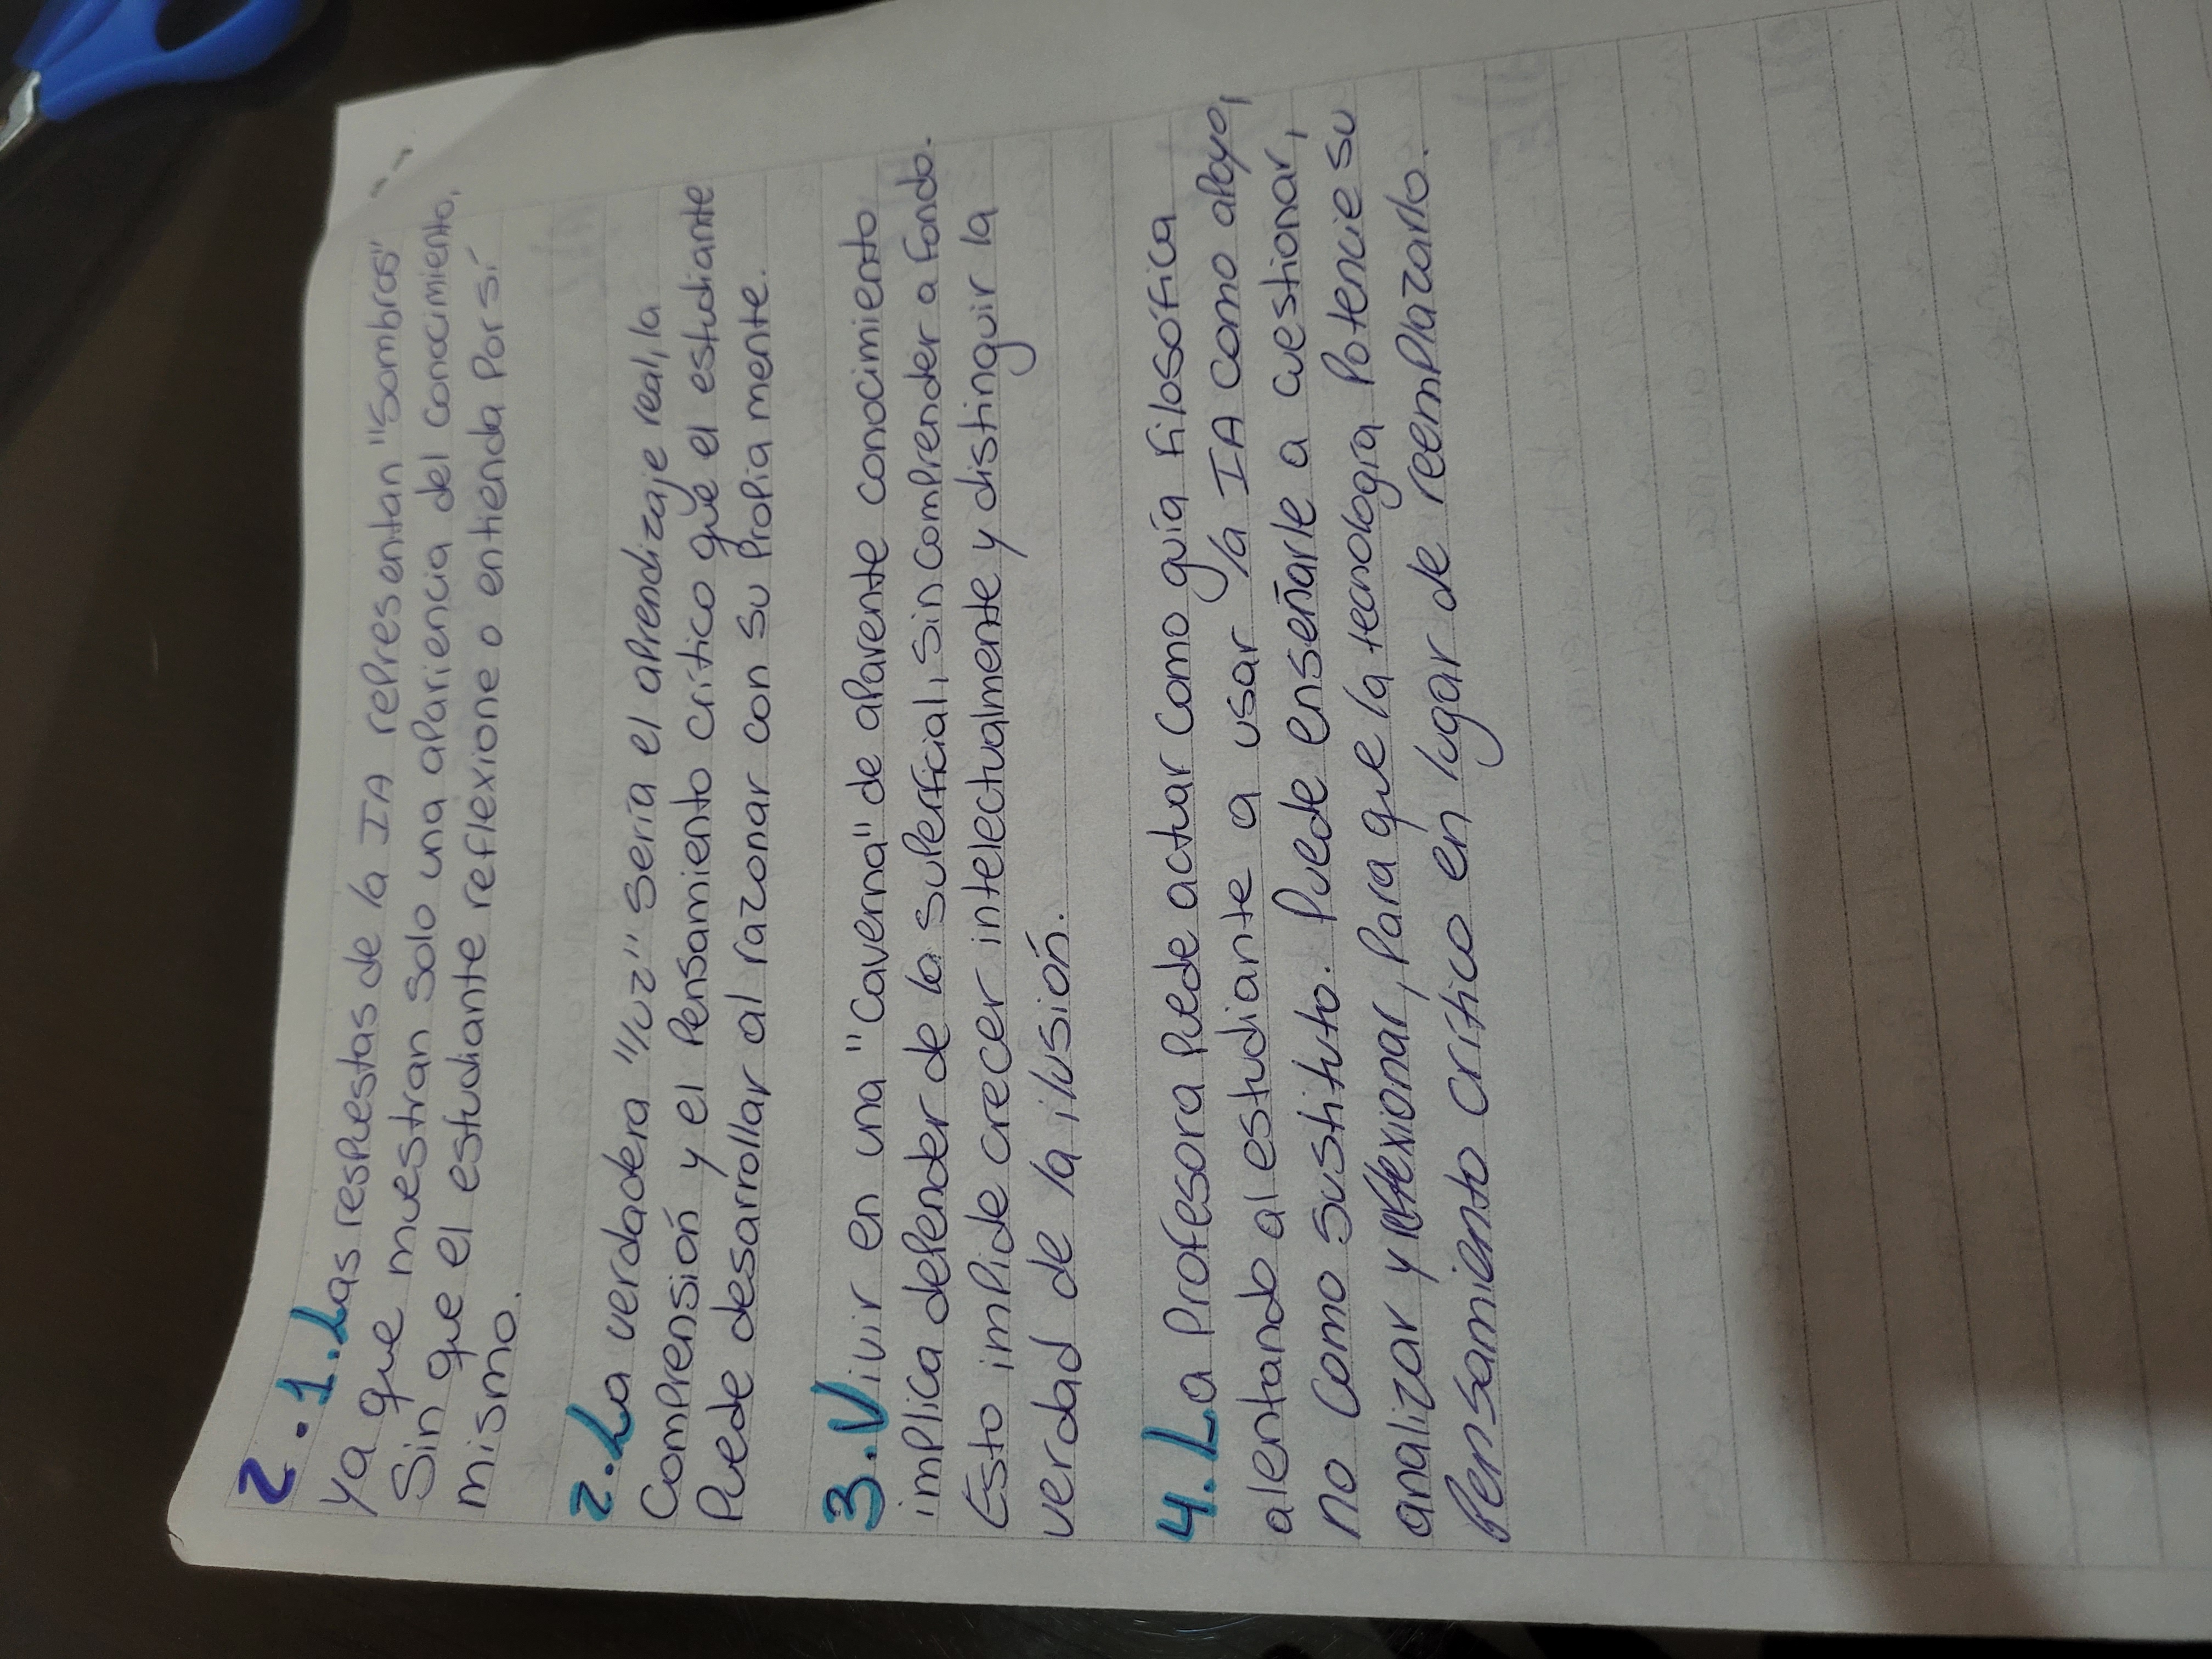 2. 1. Las respuestas de la IA representan "sombras"
ya que muestran solo una apariencia del conocimiento,
sin que el estudiante reflexione o entienda por sí
mismo.
2. La verdadera "luz" sería el aprendizaje real, la
comprensión y el pensamiento crítico que el estudiante
puede desarrollar al razonar con su propia mente.
3. Vivir en una "caverna" de aparente conocimiento
implica depender de lo superficial, sin comprender a fondo.
Esto impide crecer intelectualmente y distinguir la
verdad de la ilusión.
4. La profesora puede actuar como guía filosófica
alentando al estudiante a usar la IA como apoyo,
no como sustituto. Puede enseñarle a cuestionar,
analizar y reflexionar, para que la tecnología potencie su
pensamiento crítico en lugar de reemplazarlo.